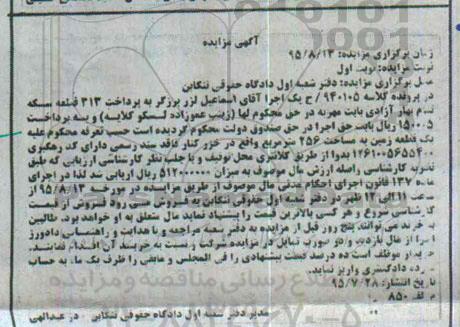 آگهی مزایده
زمان برگزاری مزایده: ۹۵/۸/۱۳
نوبت مزایده: نوبت اول
محل برگزاری مزایده: دفتر شعبه اول دادگاه حقوقی تنکابن
در پرونده کلاسه ۹۴۰۱۰۵ / ج یک اجرا آقای اسماعیل لزر برزگر به پرداخت ۳۱۳ قطعه سکه
تمام بهار آزادی بابت مهریه در حق محکوم لها (زینب عموزاده لسکو کلایه) و به پرداخت
ریال بابت حق اجرا در حق صندوق دولت محکوم گردیده است حسب تعرفه محکوم علیه
یک قطعه زمین به مساحت ۲۵۶ مترمربع واقع در خزر کنار فاقد سند رسمی دارای کد رهگیری
بدوا از طریق کلانتری محل توقیف و با جلب نظر کارشناسی ارزیابی که طبق
نظریه کارشناسی راسله ارزش مال موصوف به میزان ۵۱۲۰۰۰۰۰۰ ریال ارزیابی شد لذا در اجرای
ماده ۱۳۷ قانون اجرای احکام مدنی مال موصوف از طریق مزایده در مورخه ۹۵/۸/۱۳ از
ساعت ۱۱ الی ۱۲ ظهر در دفتر شعبه اول حقوقی تنکابن به فروش می رود فروش از قیمت
کارشناسی شروع و هر کسی بالاترین قیمت را پیشنهاد نماید مال متعلق به او خواهد بود. طالبین
به خرید می توانند پنج روز قبل از مزایده به دفتر شعبه مراجعه و با هدایت و راهنمایی دادورز
اجرا از مال بازدید و در صورت تمایل در مزایده شرکت و نسبت به خرید آن اقدام نمایند.
خریدار موظف است ده درصد قیمت پیشنهادی را فی المجلس و مابقی را ظرف یک ماه به حساب
سپرده دادگستری واریز نماید.
تاریخ انتشار: ۹۵/۷/۲۸
م الف ۸۵۰
مدیر دفتر شعبه اول دادگاه حقوقی تنکابن - در عبدالهی